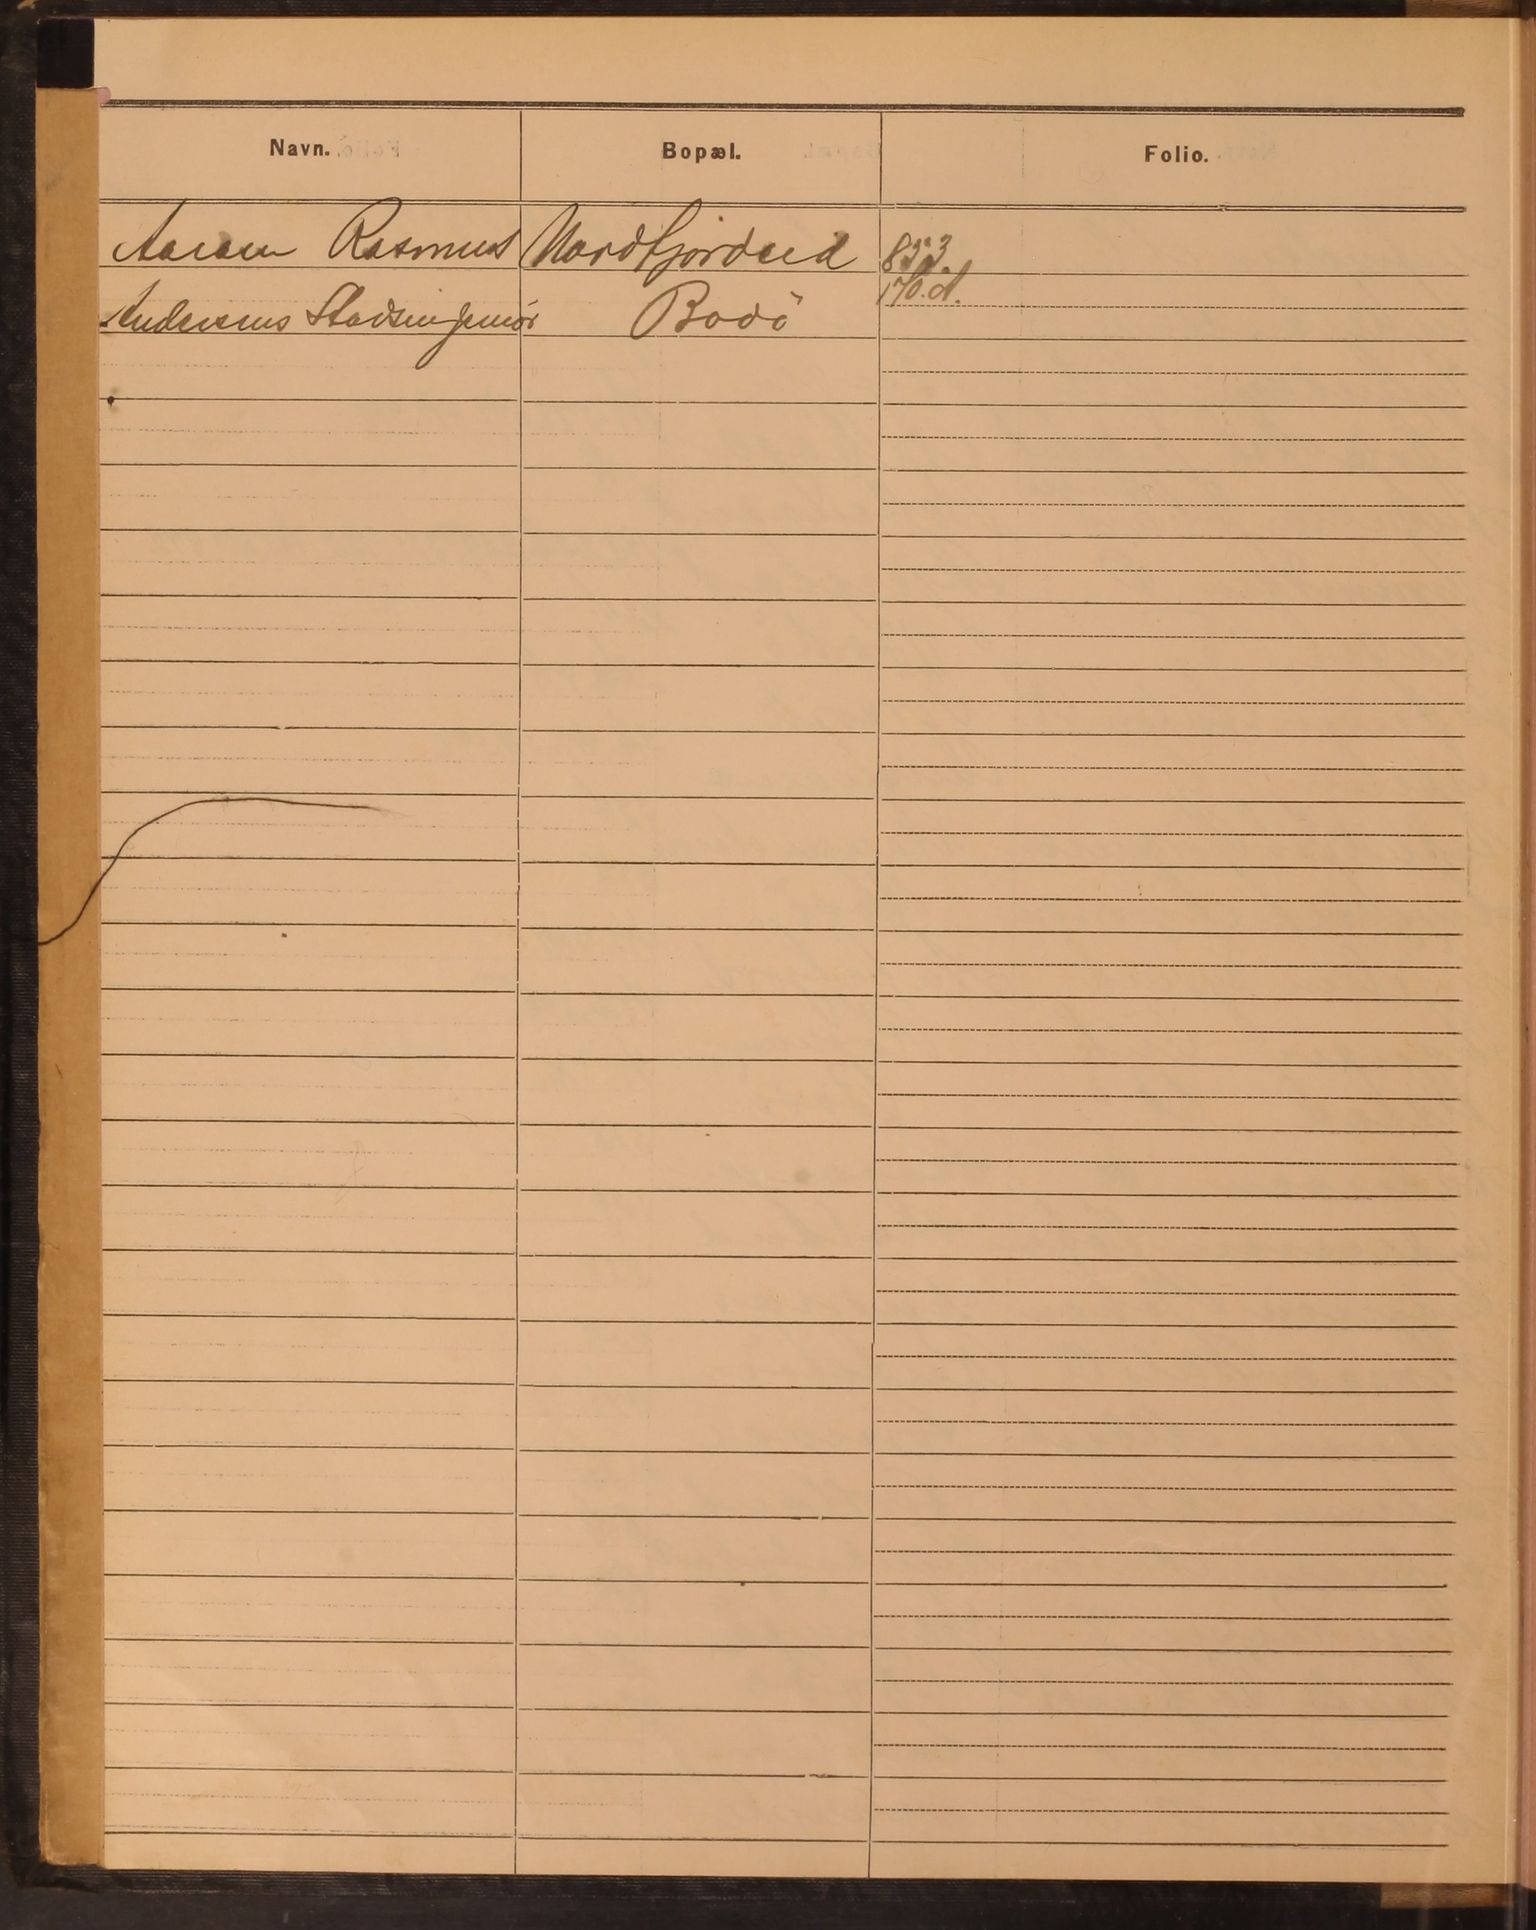 Navn. Bopæl. Folio.
Aaraen Rasmus Nordfjordeid 853.
170.A.
Andersens Stadsingeniør Bodö